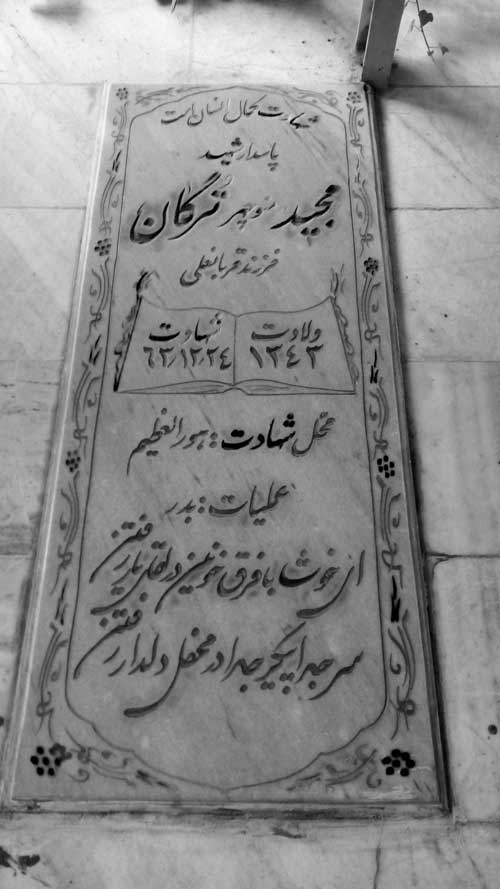 شهادت کمال انسان است
پاسدار شهید
مجید منوچهر ترکان
فرزند قربانعلی
ولادت
۱۳۴۳
شهادت
۶۳/۱۲/۲۴
محل شهادت: هورالعظیم
عملیات: بدر
ای خوشا با فرق خونین در لقای یار رفتن
سر جدا پیکر جدا در محفل دلدار رفتن